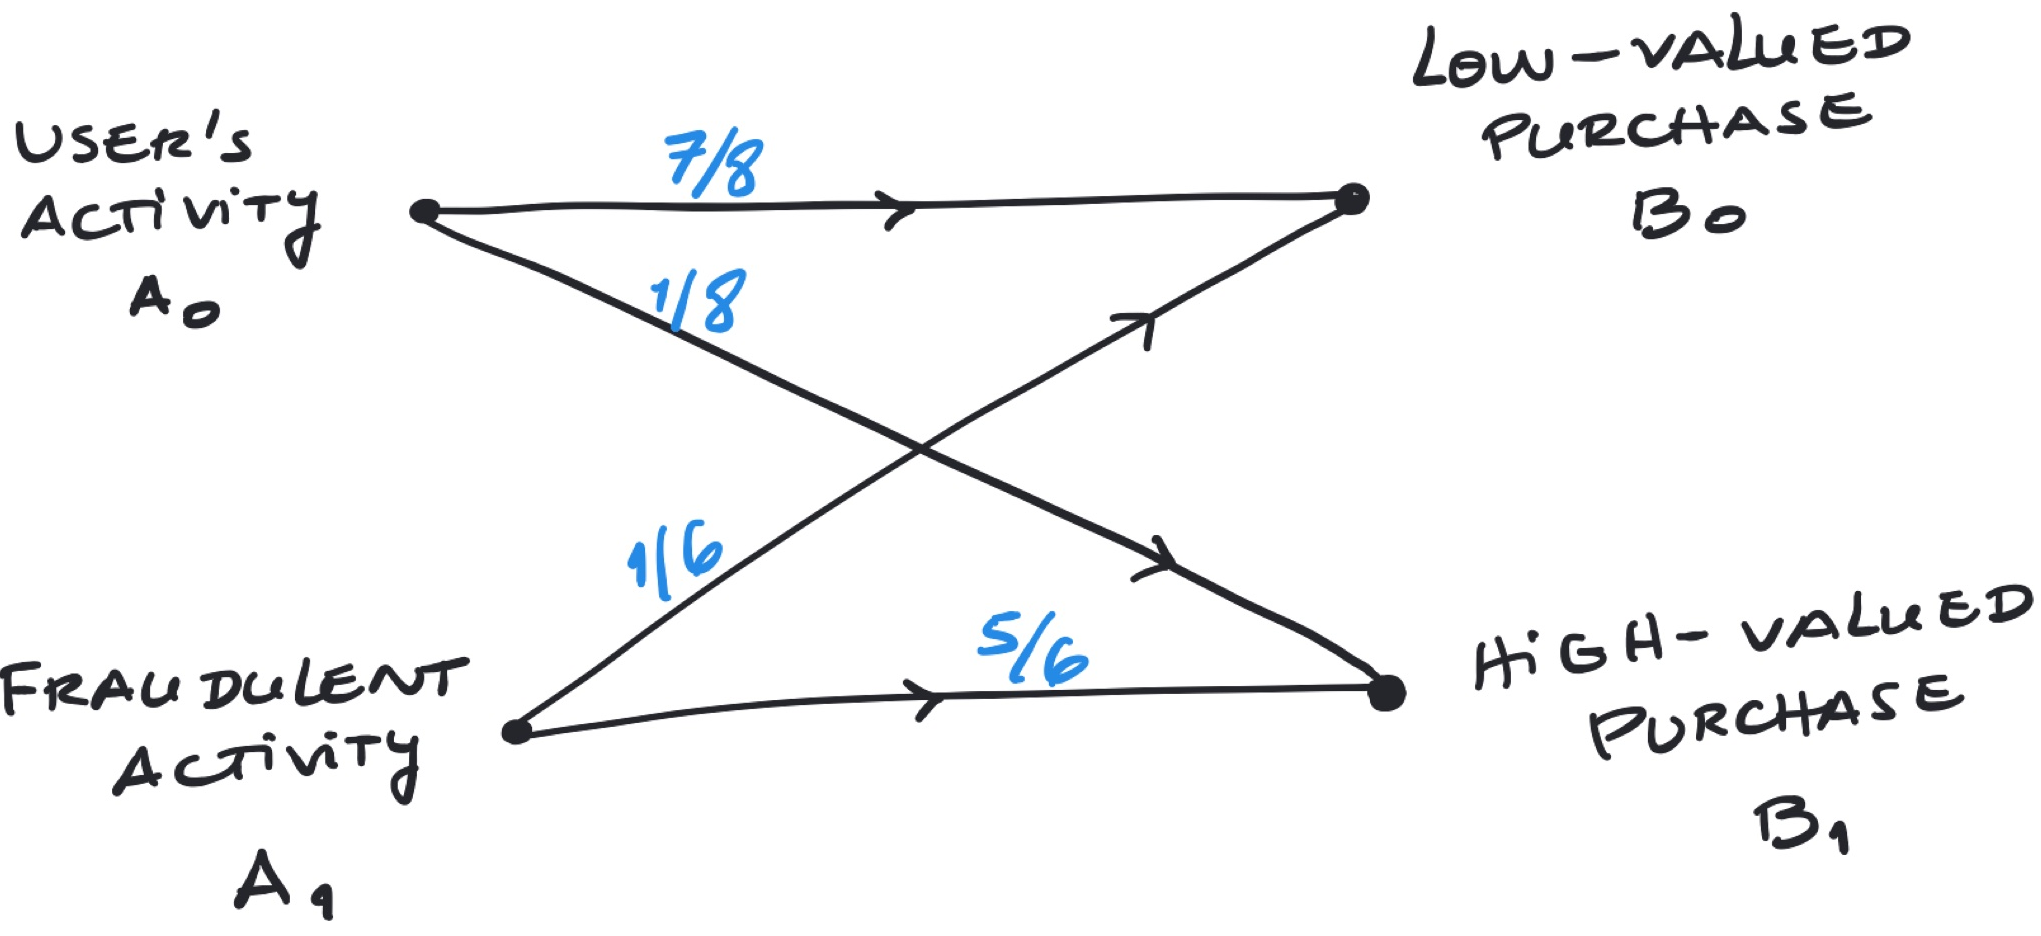 USER'S
ACTIVITY
A0
7/8
1/8
LOW-VALUED
PURCHASE
B0
1/6
5/6
FRAUDULENT
ACTIVITY
A1
HIGH-VALUED
PURCHASE
B1